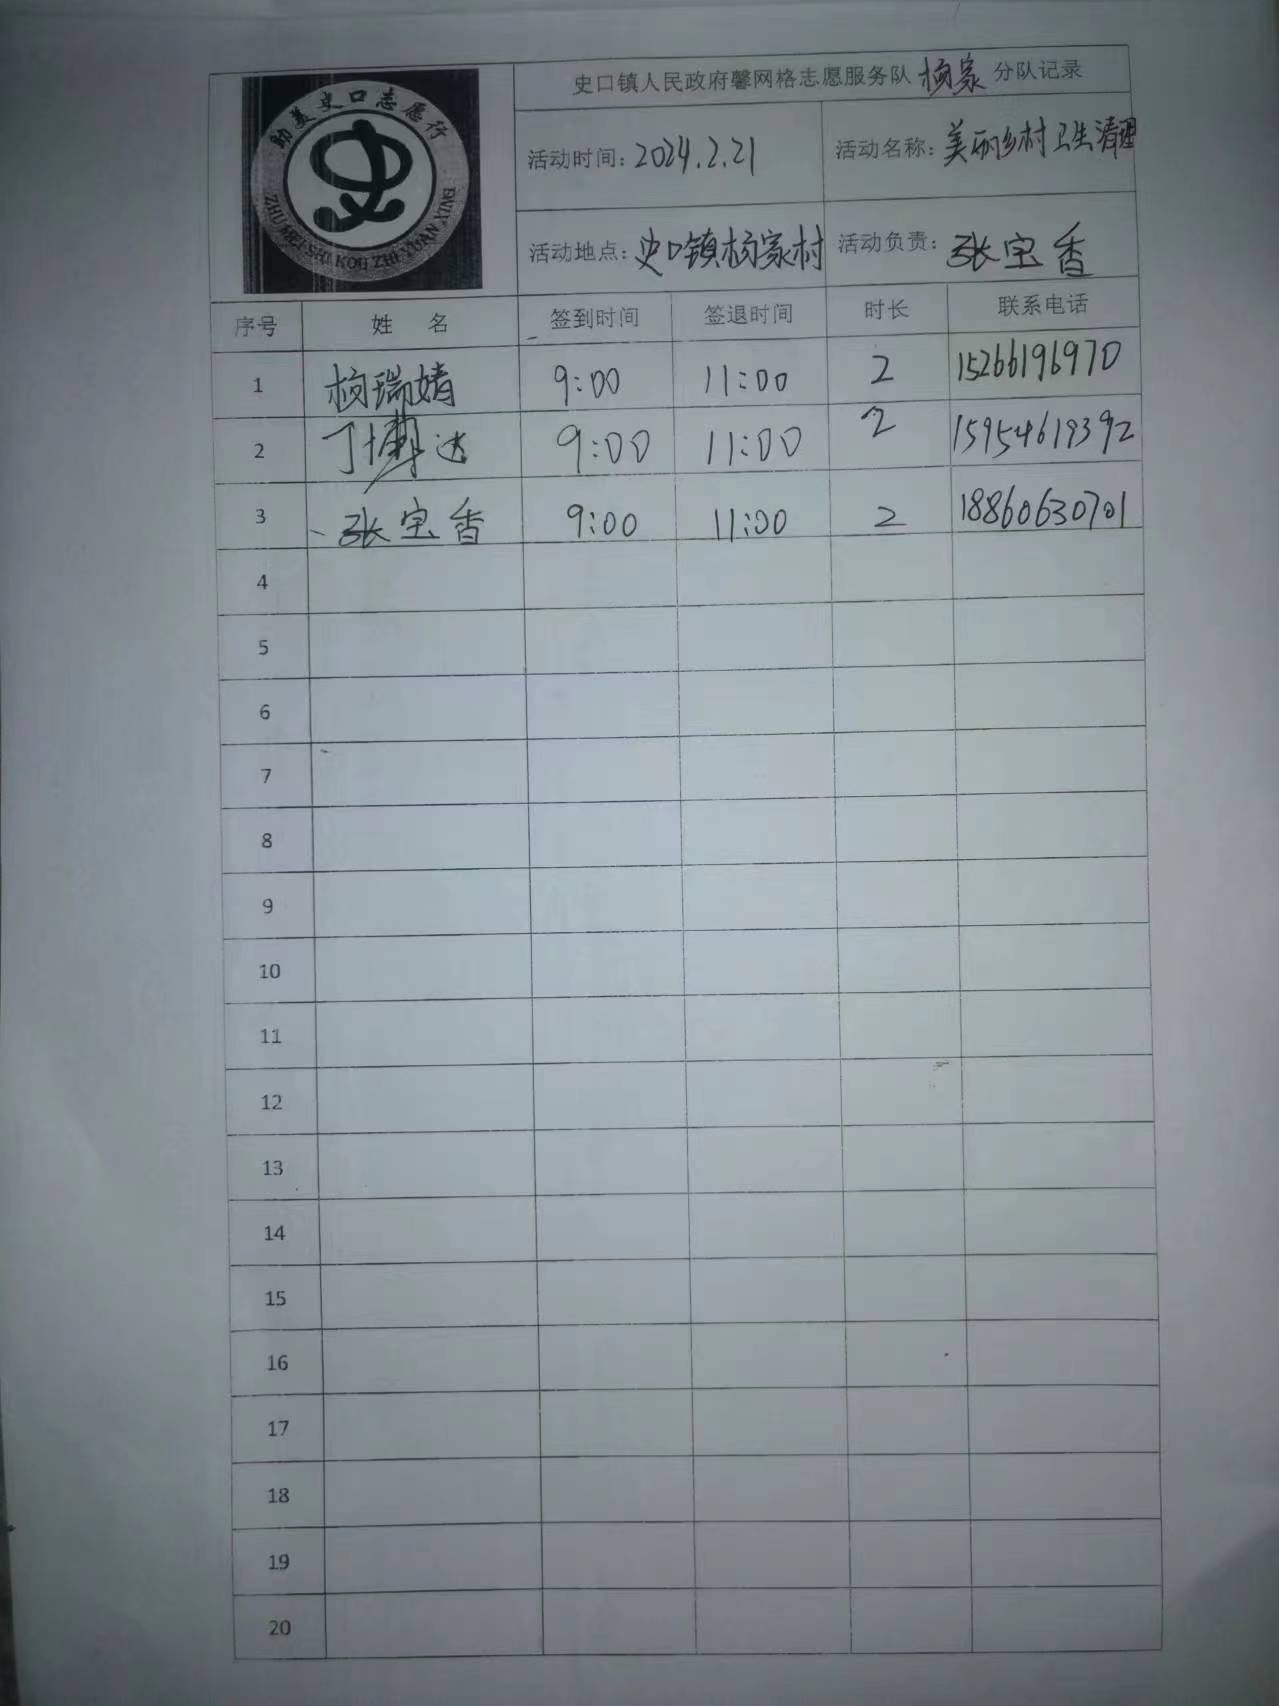 助美史口志愿行
ZHU MEI SHI KOU ZHI YUAN XING
史口镇人民政府馨网格志愿服务队 杨家 分队记录
活动时间：2024.2.21 活动名称：美丽乡村卫生清理
活动地点：史口镇杨家村 活动负责：张宝香
序号 姓 名 签到时间 签退时间 时长 联系电话
1 杨瑞婧 9:00 11:00 2 15266196970
2 丁博达 9:00 11:00 2 15954619392
3 张宝香 9:00 11:00 2 18860630701
4
5
6
7
8
9
10
11
12
13
14
15
16
17
18
19
20